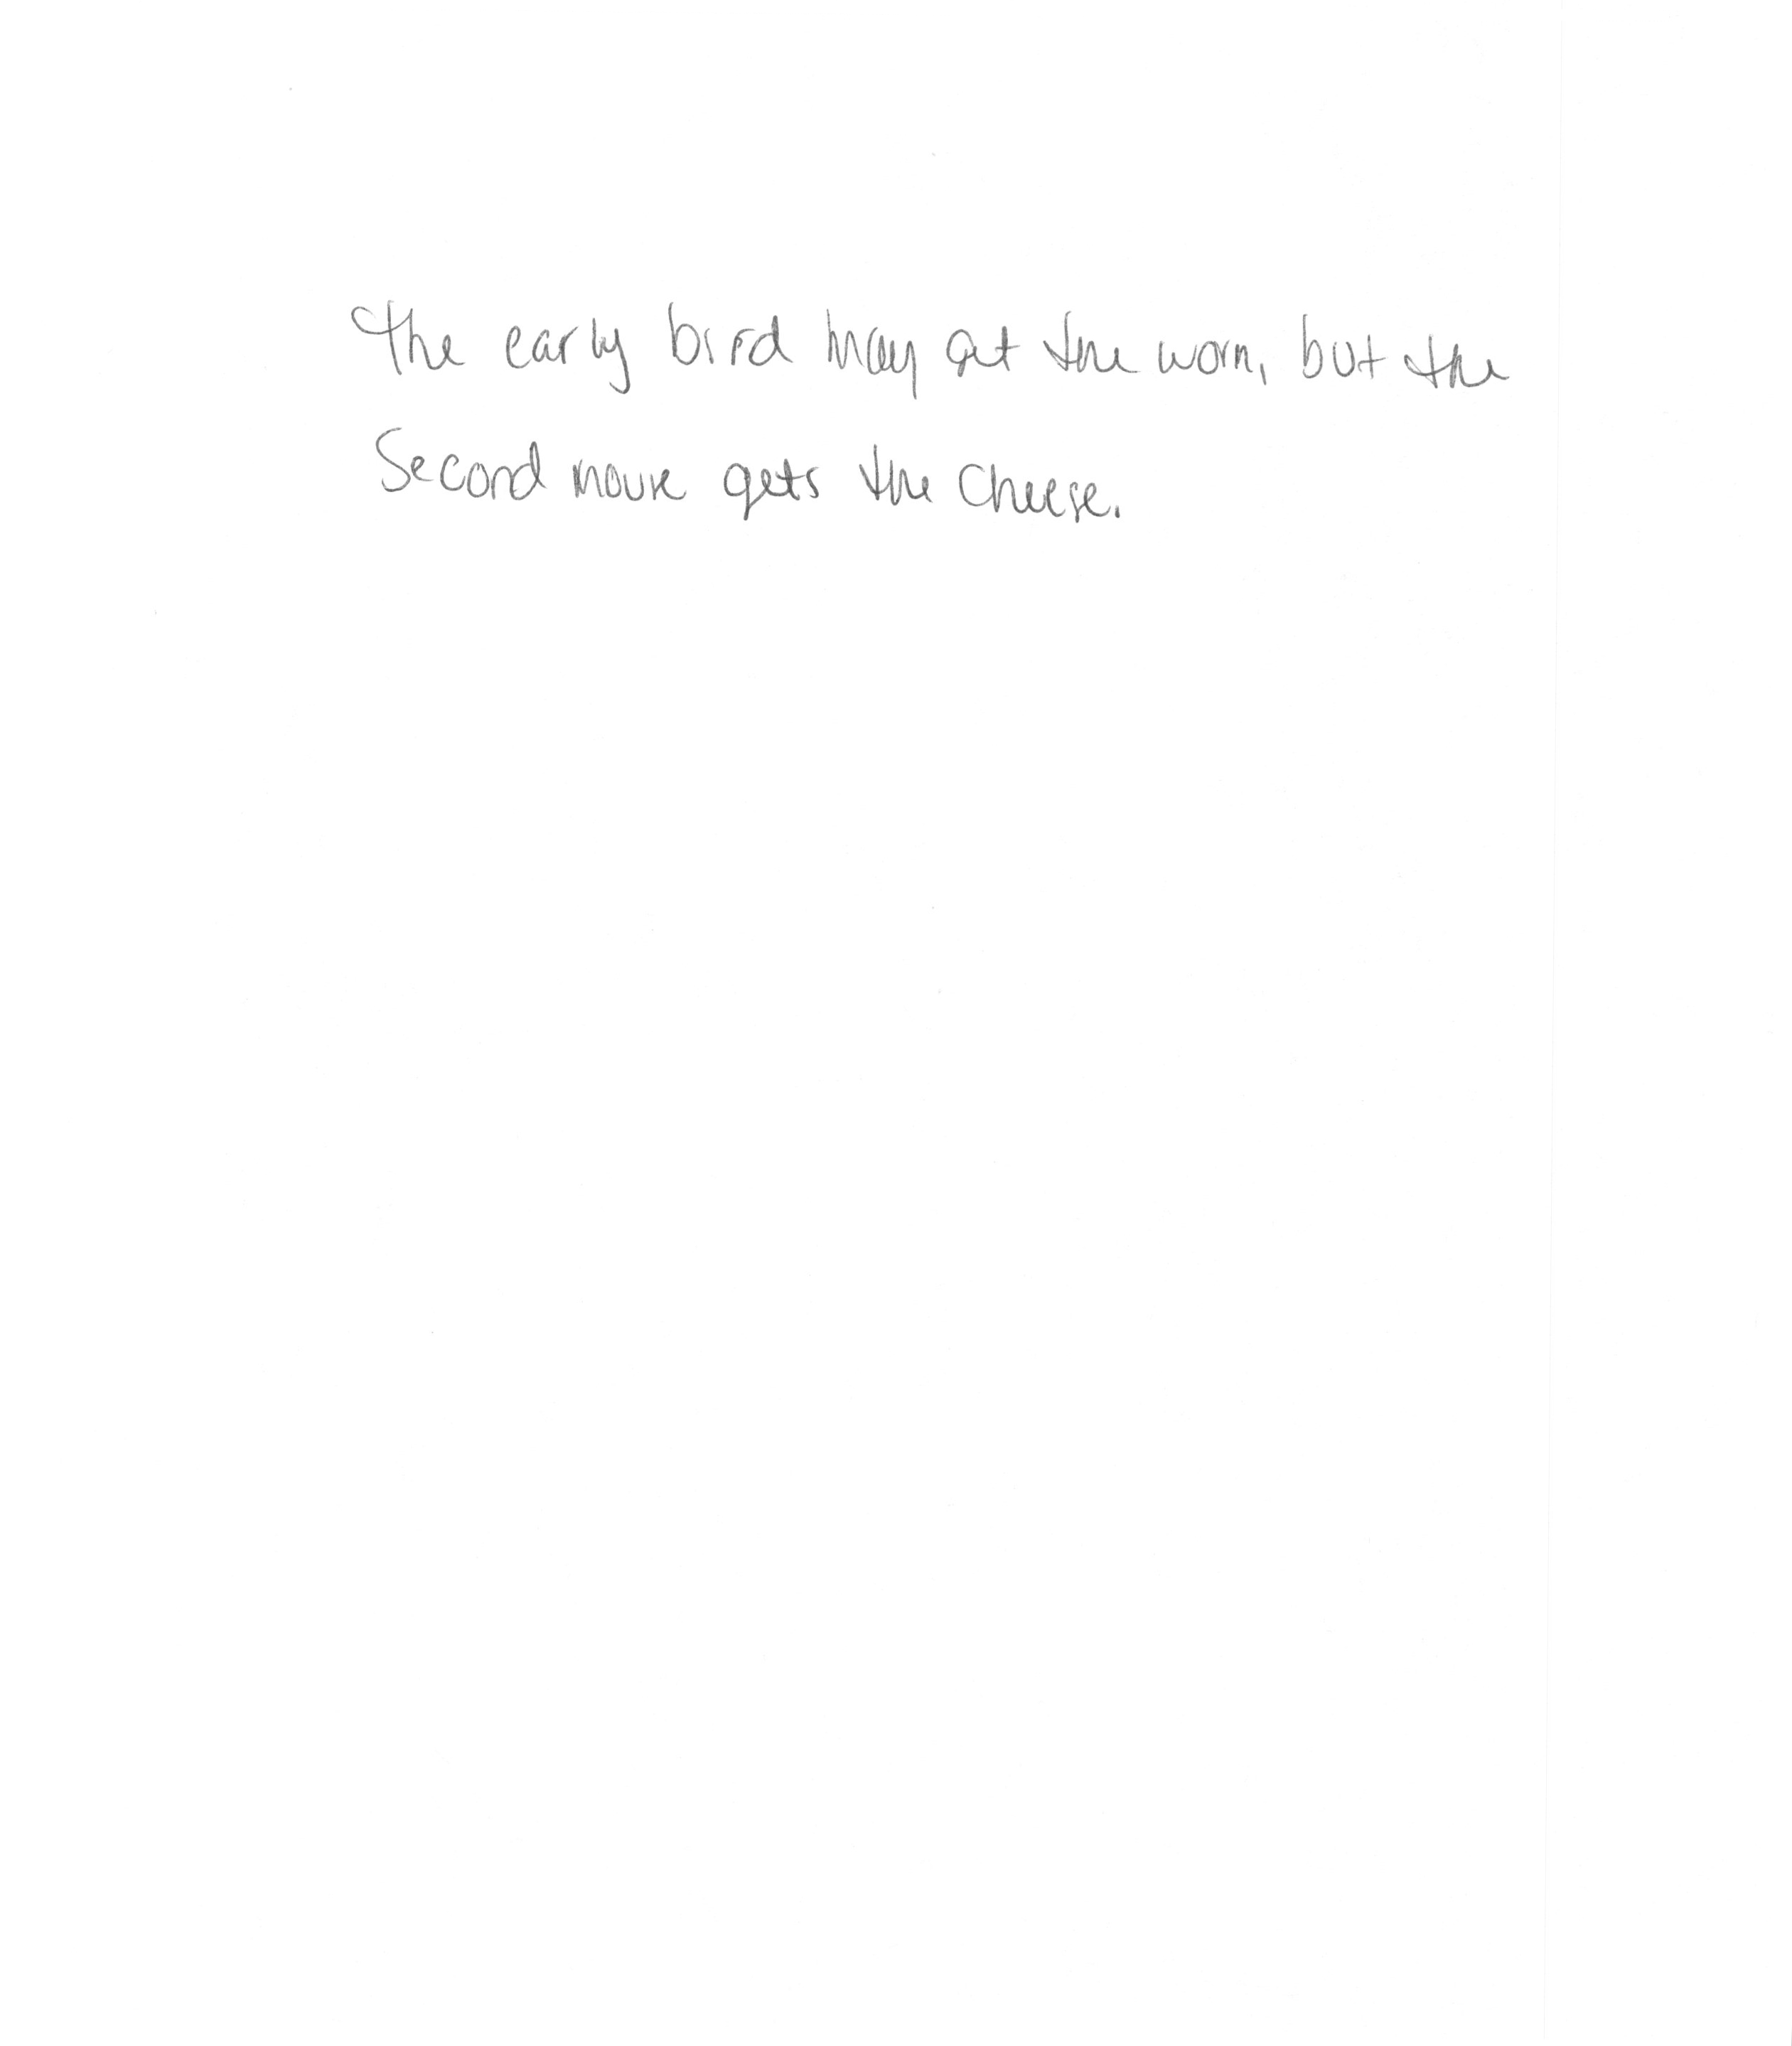 The early bird may get the worm, but the
Second mouse gets the cheese.